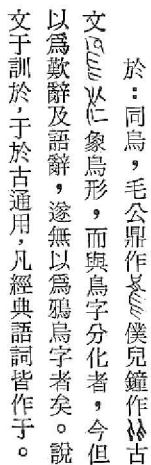 於:同烏,毛公鼎作 僕兒鐘作 古
文 象烏形,而與烏字分化者,今但
以爲歎辭及語辭,遂無以爲鴉烏字者矣。說
文于訓於,于於古通用,凡經典語詞皆作于。